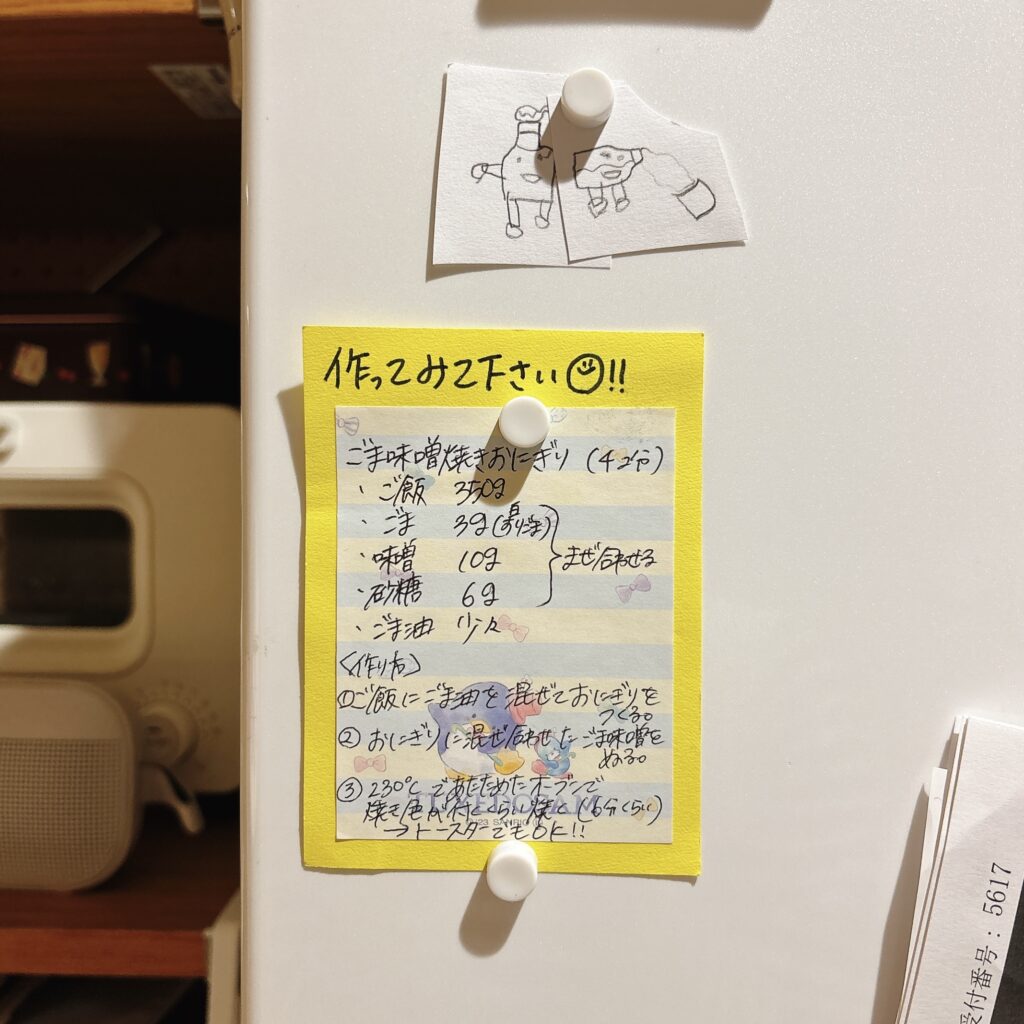 作ってみて下さい!!
ごま味噌焼きおにぎり (4コ分)
・ご飯 350g
・ごま 3g(白すりごま)
・味噌 10g
・砂糖 6g
まぜ合わせる
・ごま油 少々
〈作り方〉
①ご飯にごま油を混ぜておにぎりを
つくる。
②おにぎりに混ぜ合わせたごま味噌を
ぬる。
③230℃であたためたオーブンで
焼き色が付くくらい焼く(6分くらい)
→トースターでもOK!!
TUXEDOSAM
受付番号:5617